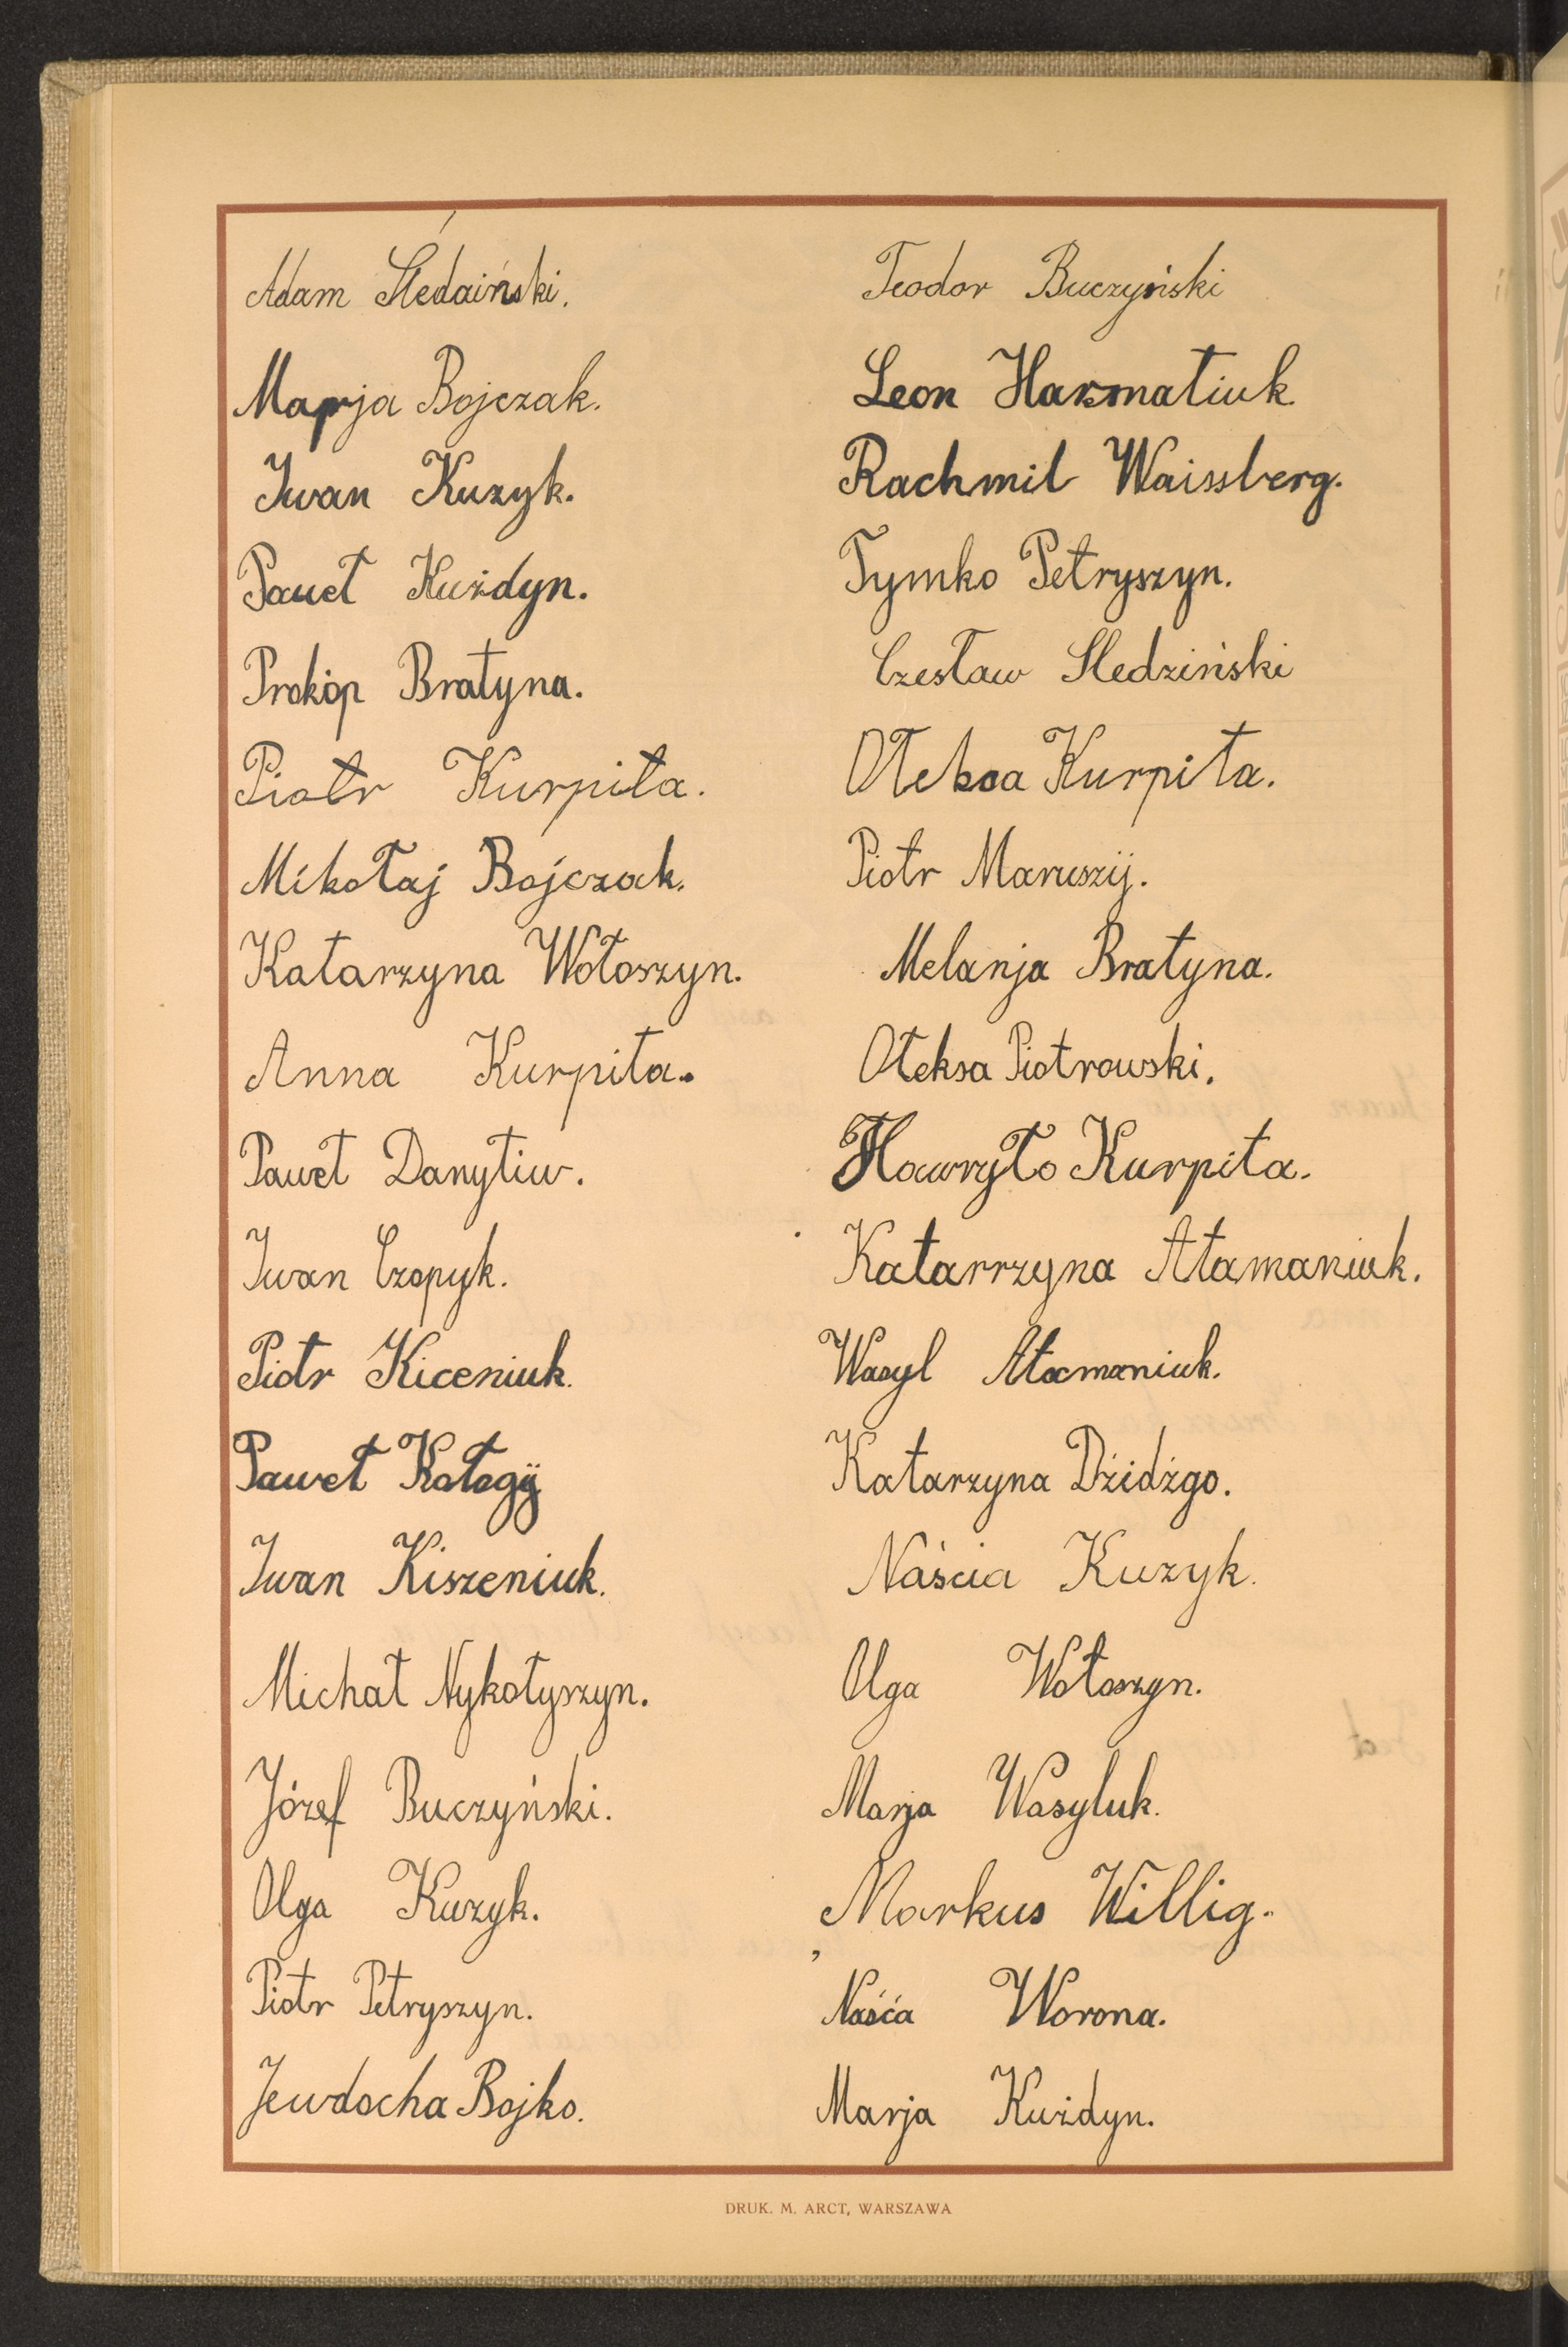 Adam Śledaiński.
Marja Bojczak.
Iwan Kuzyk.
Paweł Kużdyn.
Prokip Bratyna.
Piotr Kurpiła.
Mikołaj Bojczak.
Katarzyna Wołoszyn.
Anna Kurpiła.
Paweł Danyłiw.
Iwan Czopyk.
Piotr Kiceniuk.
Paweł
Iwan Kiszeniuk.
Michał Nykołyszyn.
Józef Buczyński.
Olga Kuzyk.
Piotr Petryszyn.
Jewdocha Bojko.
Teodor Buczyński
Leon Harmatiuk
Rachmil Waissberg.
Tymko Petryszyn.
Czesław Sledziński
Ołeksa Kurpiła.
Piotr Maruszij.
Melanja Bratyna.
Ołeksa Piotrowski.
Hawryło Kurpiła.
Katarrzyna Atamaniuk.
Wasyl Atamaniuk.
Katarzyna Dżidżgo.
Naścia Kuzyk.
Olga Wołoszyn.
Marja Wasyluk.
Markus Willig.
Naśća Worona.
Marja Kużdyn.
DRUK. M. ARCT, WARSZAWA